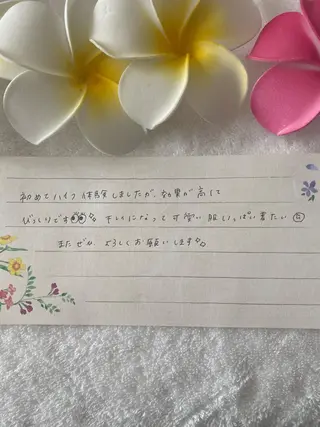 初めてハイフ体験しましたが、効果が高くて
びっくりです👀 キレイになって可愛い服いっぱい着たい
またぜひ、よろしくお願いします